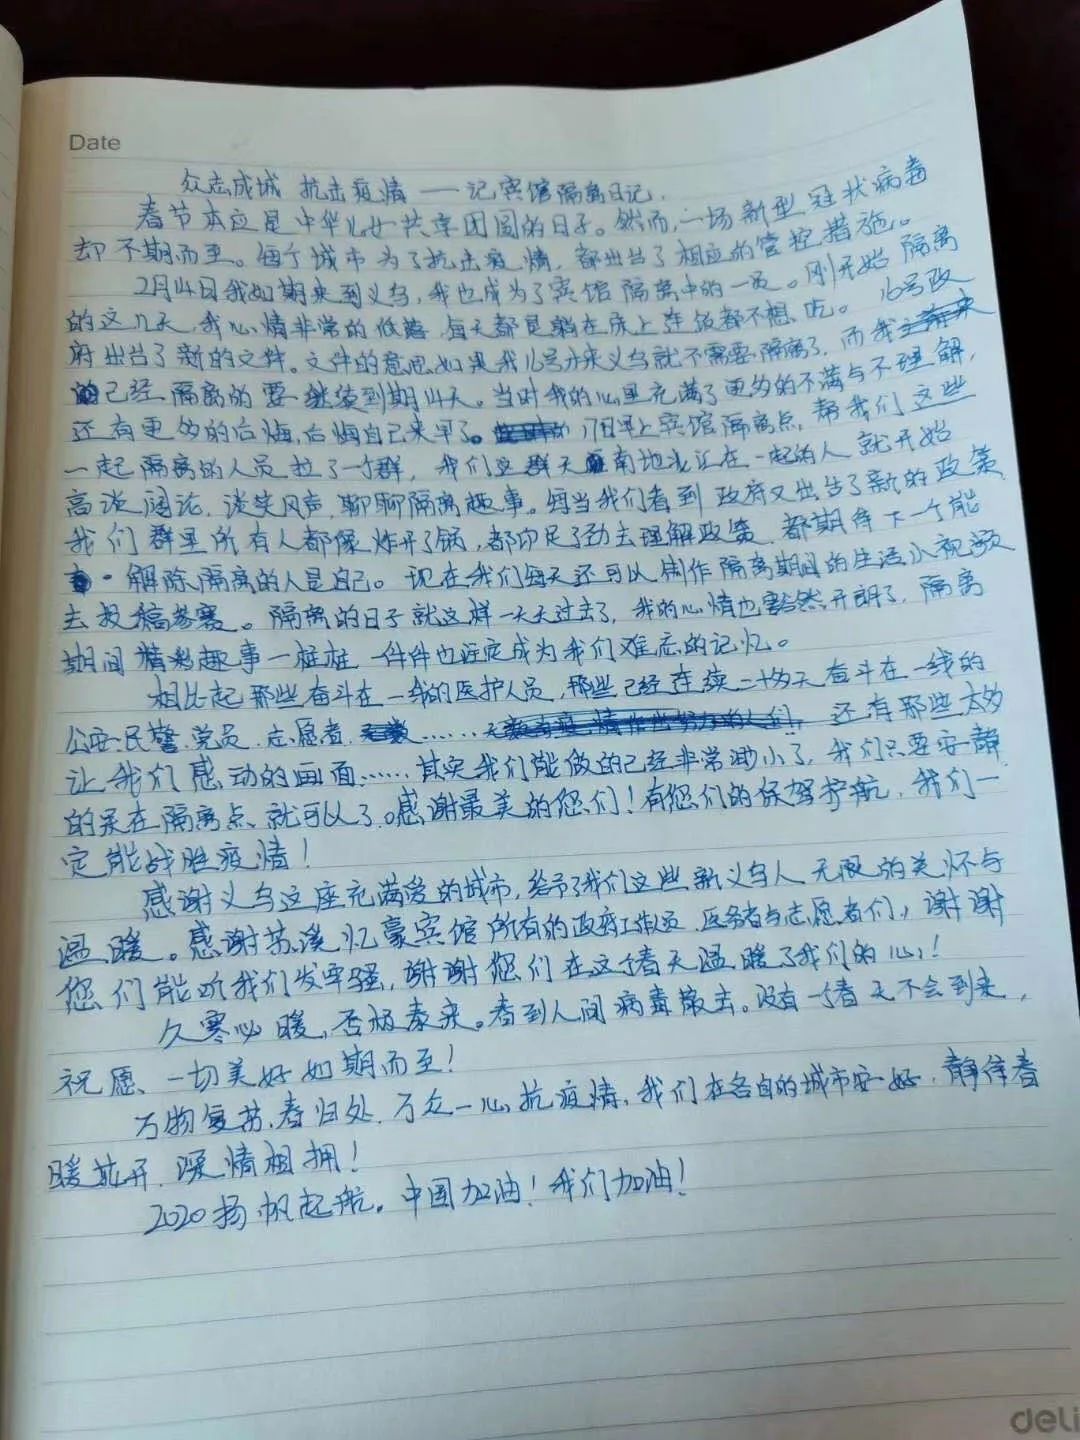 Date
众志成城 抗击疫情 —— 记宾馆隔离日记.
春节本应是中华儿女共享团圆的日子。然而,一场新型冠状病毒
却不期而至。每个城市为了抗击疫情,都出台了相应的管控措施。
2月14日我如期来到义乌,我也成为了宾馆隔离中的一员。刚开始隔离
的这几天,我心情非常的低落,每天都是躺在床上连饭都不想吃。16号政
府出台了新的文件。文件的意思如果我16号才来义乌就不需要隔离了,而我
已经隔离的要继续到期14天。当时我的心里充满了更多的不满与不理解,
还有更多的后悔,后悔自己来早了。17日早上宾馆隔离点,帮我们这些
一起隔离的人员拉了一个群,我们这群天南地北汇在一起的人就开始
高谈阔论,谈笑风声,聊聊隔离趣事。每当我们看到政府又出台了新的政策,
我们群里所有人都像炸开了锅,都卯足了劲去理解政策,都期待下一个能
解除隔离的人是自己。现在我们每天还可以制作隔离期间的生活小视频
去投稿参赛。隔离的日子就这样一天天过去了,我的心情也豁然开朗了,隔离
期间精彩趣事一桩桩一件件也注定成为我们难忘的记忆。
相比起那些奋斗在一线的医护人员,那些已经连续二十多天奋斗在一线的
公安民警、党员、志愿者,……还有那些太多
让我们感动的画面……其实我们能做的已经非常渺小了,我们只要安静
的呆在隔离点就可以了。感谢最美的您们!有您们的保驾护航,我们一
定能战胜疫情!
感谢义乌这座充满爱的城市,给予了我们这些新义乌人无限的关怀与
温暖。感谢苏溪忆豪宾馆所有的政府工作员、医务者与志愿者们,谢谢
您们能听我们发牢骚,谢谢您们在这个春天温暖了我们的心!
久寒必暖,否极泰来。看到人间病毒散去。没有一个春天不会到来,
祝愿、一切美好如期而至!
万物复苏,春归处,万众一心抗疫情,我们在各自的城市安好,静待春
暖花开,深情相拥!
2020扬帆起航。中国加油!我们加油!
deli